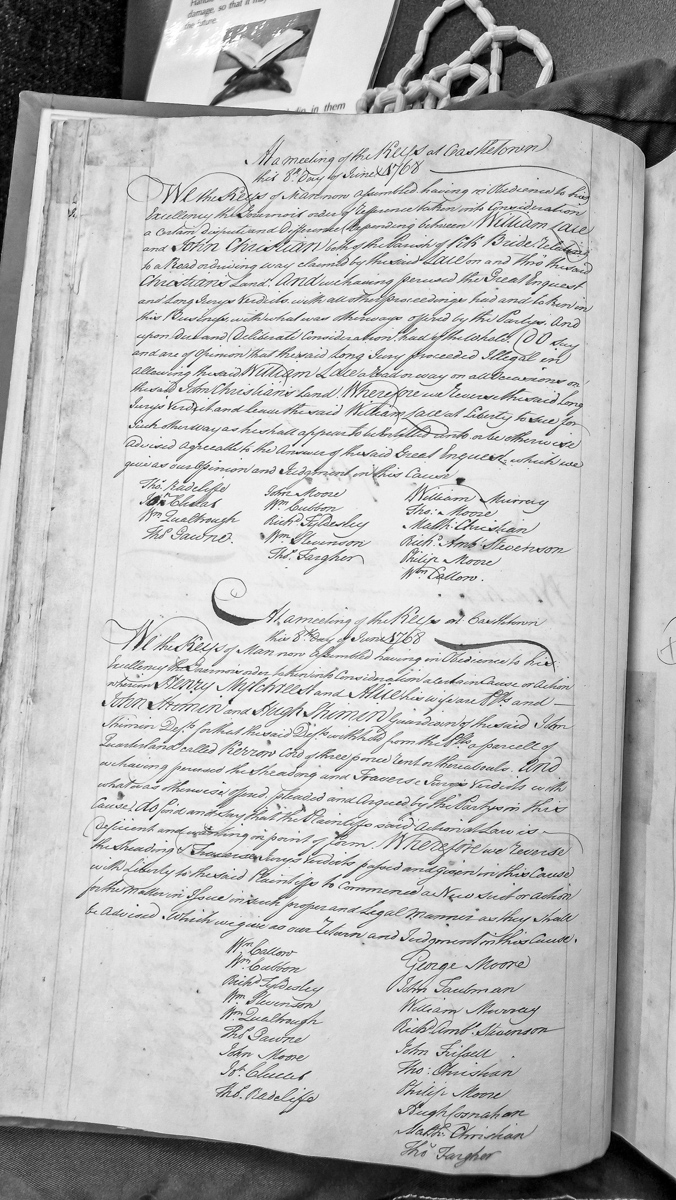 damage, so that it may
the future.
in them
At a meeting of the Keys at Castletown
this 8th Day of June 1768
We the Keys of Man now assembled having in Obedience to his
Excellency the Governors order of Reference taken into Consideration
a Certain dispute and difference depending between William Lace
and John Christian both of the Parish of Kk Bride relating
to a Road or driving way claimed by the said Lace on and thro' the said
Christians Land. And we having perused the Great Enquest
and Long Jurys Verdicts with all other proceedings had and taken in
this Business, with what was otherways offered by the Partys. And
upon due and Deliberate Consideration had of the Whole. DO say
and are of Opinion that the said Long Jury proceeded Illegal in
allowing the said William Lace a Road or way on all Occasions on
the said John Christians Land Wherefore we Reverse the said Long
Jurys Verdict and leave the said William Lace at Liberty to sue for
such other way as he shall appear to be entitled unto or be otherwise
advised Agreeable to the Answer of the said Great Enquest, which we
give as our Opinion and Judgment in this Cause.
Tho. Radcliffe John Moore William Murray
Jon. Clucas Wm Cubbon Tho: Moore
Wm Qualtrough Richd Tyldesley Matth: Christian
Thos Gawne. Wm Stevenson Richd Ambs Stevenson
Thos Fargher Philip Moore
Wm Callow.
At a meeting of the Keys at Castletown
this 8th Day of June 1768
We the Keys of Man now assembled having in Obedience to his
Excellency the Governors order taken into Consideration a certain Cause or Action
wherein Henry Mylchreest and Alice his wife are Pltfs and
John Skimin and Hugh Skimin Guardians of the said John
Skimin Defts for that the said Defts withhold from the Pltfs a parcell of
Quarterland called Cord of three pence rent or thereabouts. And
we having perused the Sheading and Traverse Jurys Verdicts with
what was otherwise offered, pleaded and argued by the Partys in this
Cause, do find and say that the Plaintiffs said Action at Law is
Deficient and wanting in point of Form. Wherefore we Reverse
the Sheading & Traverse Jurys Verdicts passed and given in this Cause
with Liberty to the said Plaintiffs to Commence a New suit or Action
for the Matter in Issue in such proper and Legal Manner as they shall
be Advised. Which we give as our Return and Judgment in this Cause.
Wm Callow George Moore
Wm Cubbon John Taubman
Richd Tyldesley William Murray
Wm Stevenson Richd Ambs Stevenson
Wm Qualtrough John Frissell
Thos Gawne Tho: Christian
John Moore Philip Moore
Jon. Clucas Hugh Cosnahan
Thos. Radcliffe Matth: Christian
Thos Fargher